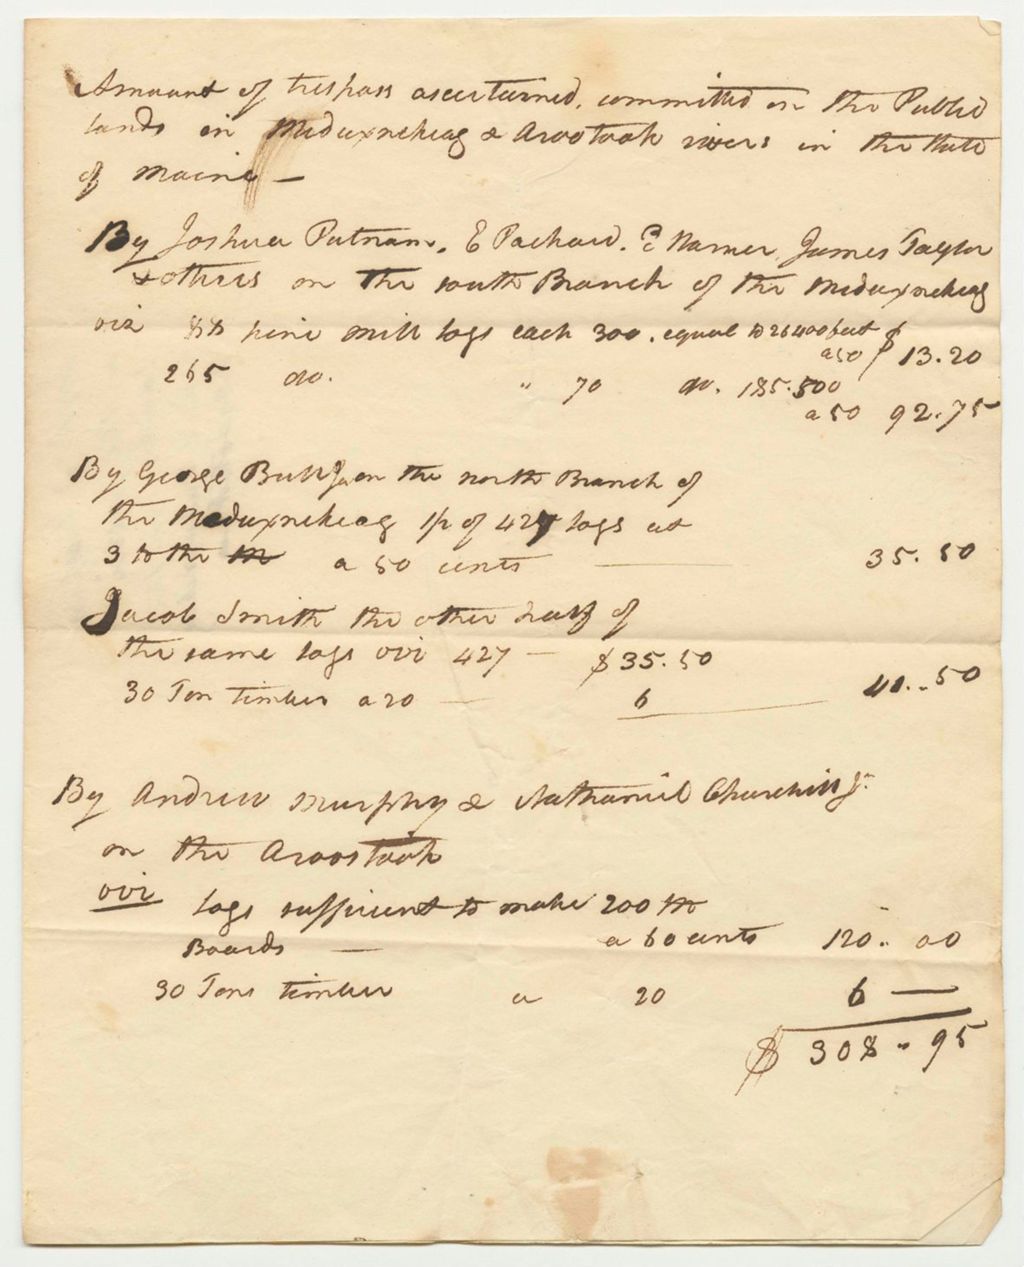 Amount of trespass ascertained, committed on the Public
lands in Meduxnekeag & Aroostook rivers in the State
of Maine —
By Joshua Putnam, E Packard, E Warner, James Taylor
& others on the south Branch of the Meduxnekeag
viz 88 pine mill logs each 300. equal to 26400 feet
a 50 $ 13.20
265 do. " 70 do. 185.500
a 50 92.75
By George Bull Jr on the north Branch of
the Meduxnekeag 1/2 of 427 logs at
3 to the M a 50 cents — 35.50
Jacob Smith the other half of
the same logs viz 427 — $35.50
30 Ton timber a 20 — 6 41..50
By Andrew Murphy & Nathaniel Churchill Jr
on the Aroostook
viz logs sufficient to make 200 M
Boards — a 60 cents 120.. 00
30 Tons timber a 20 6 —
$ 308.. 95